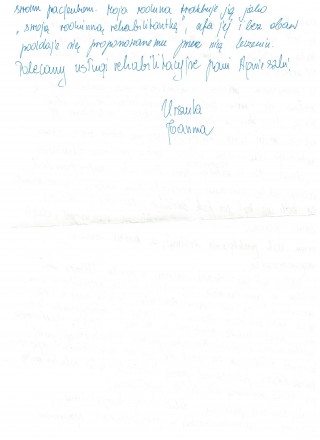 swoim pacjentom. Moja rodzina traktuje ją jako
"swoją rodzinną rehabilitantkę", ufa jej i bez obaw
poddaje się proponowanemu przez nią leczeniu.
Polecamy usługi rehabilitacyjne pani Agnieszki.
Urszula
Joanna